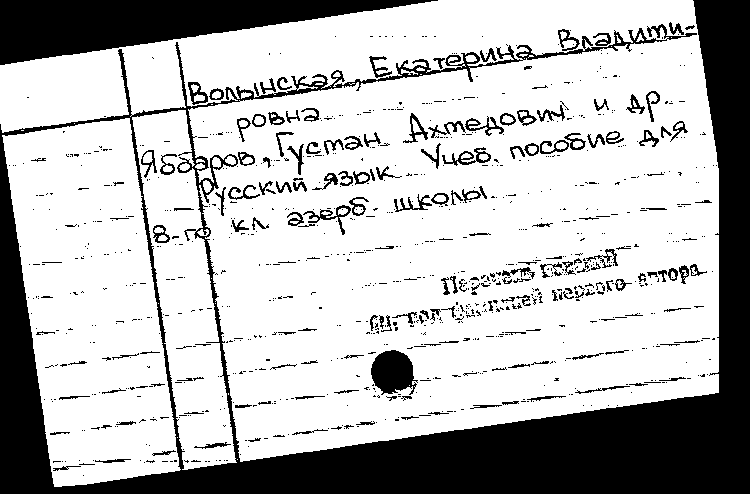 Волынская, Екатерина Владими-
ровна
Яббаров, Густан Ахмедович и др.
Русский язык Учеб. пособие для
8-го кл. азерб. школы.
Перечень пособий
см. под фамилией первого автора